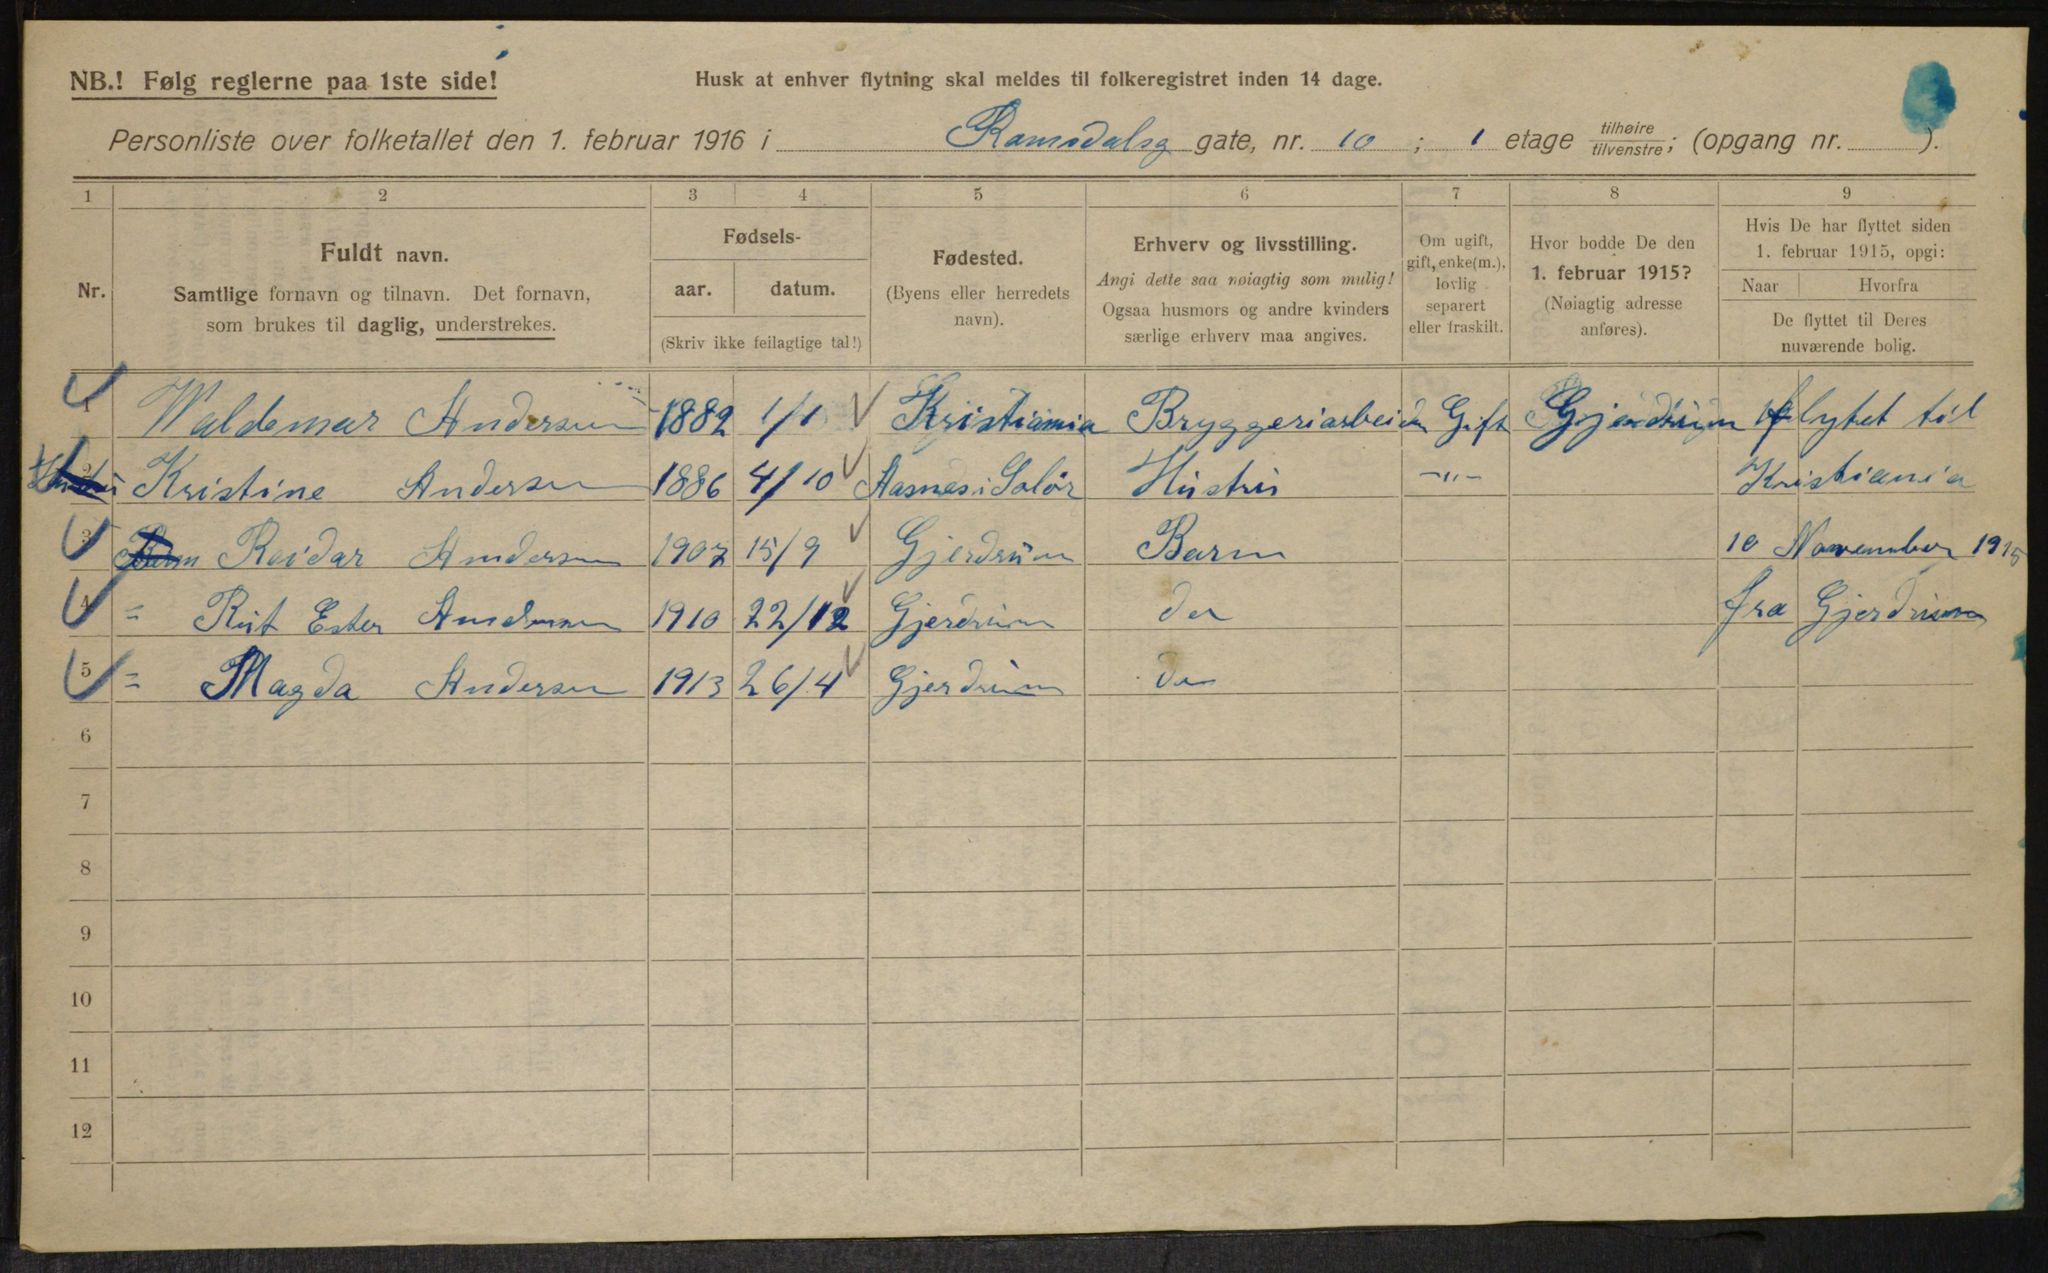 NB.! Følg reglerne paa 1ste side!
Husk at enhver flytning skal meldes til folkeregistret inden 14 dage.
Personliste over folketallet den 1. februar 1916 i Ramsdalsg gate, nr. 10 ; 1 etage tilhøire tilvenstre; (opgang nr. ).
1 2 3 4 5 6 7 8 9
Nr.
Fuldt navn.
Samtlige fornavn og tilnavn. Det fornavn,
som brukes til daglig, understrekes.
Fødsels-
aar. datum.
(Skriv ikke feilagtige tal!)
Fødested.
(Byens eller herredets
navn).
Erhverv og livsstilling.
Angi dette saa nøiagtig som mulig!
Ogsaa husmors og andre kvinders
særlige erhverv maa angives.
Om ugift,
gift, enke(m.),
lovlig
separert
eller fraskilt.
Hvor bodde De den
1. februar 1915?
(Nøiagtig adresse
anføres).
Hvis De har flyttet siden
1. februar 1915, opgi:
Naar Hvorfra
De flyttet til Deres
nuværende bolig.
1 Waldemar Andersen 1882 1/1 Kristiania Bryggeriarbeider Gift Gjerdrum flytet til
2 Kristine Andersen 1886 4/10 Aasnes i Solör Hustru -"- Kristiania
3 Barn Reidar Andersen 1907 15/9 Gjerdrum Barn 10 November 1915
4 = Rut Ester Andersen 1910 22/12 Gjerdrum do fra Gjerdrum
5 = Magda Andersen 1913 26/4 Gjerdrum do
6
7
8
9
10
11
12